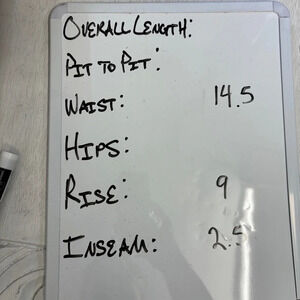 OVERALL LENGTH:
PIT TO PIT:
WAIST: 14.5
HIPS:
RISE: 9
INSEAM: 2.5